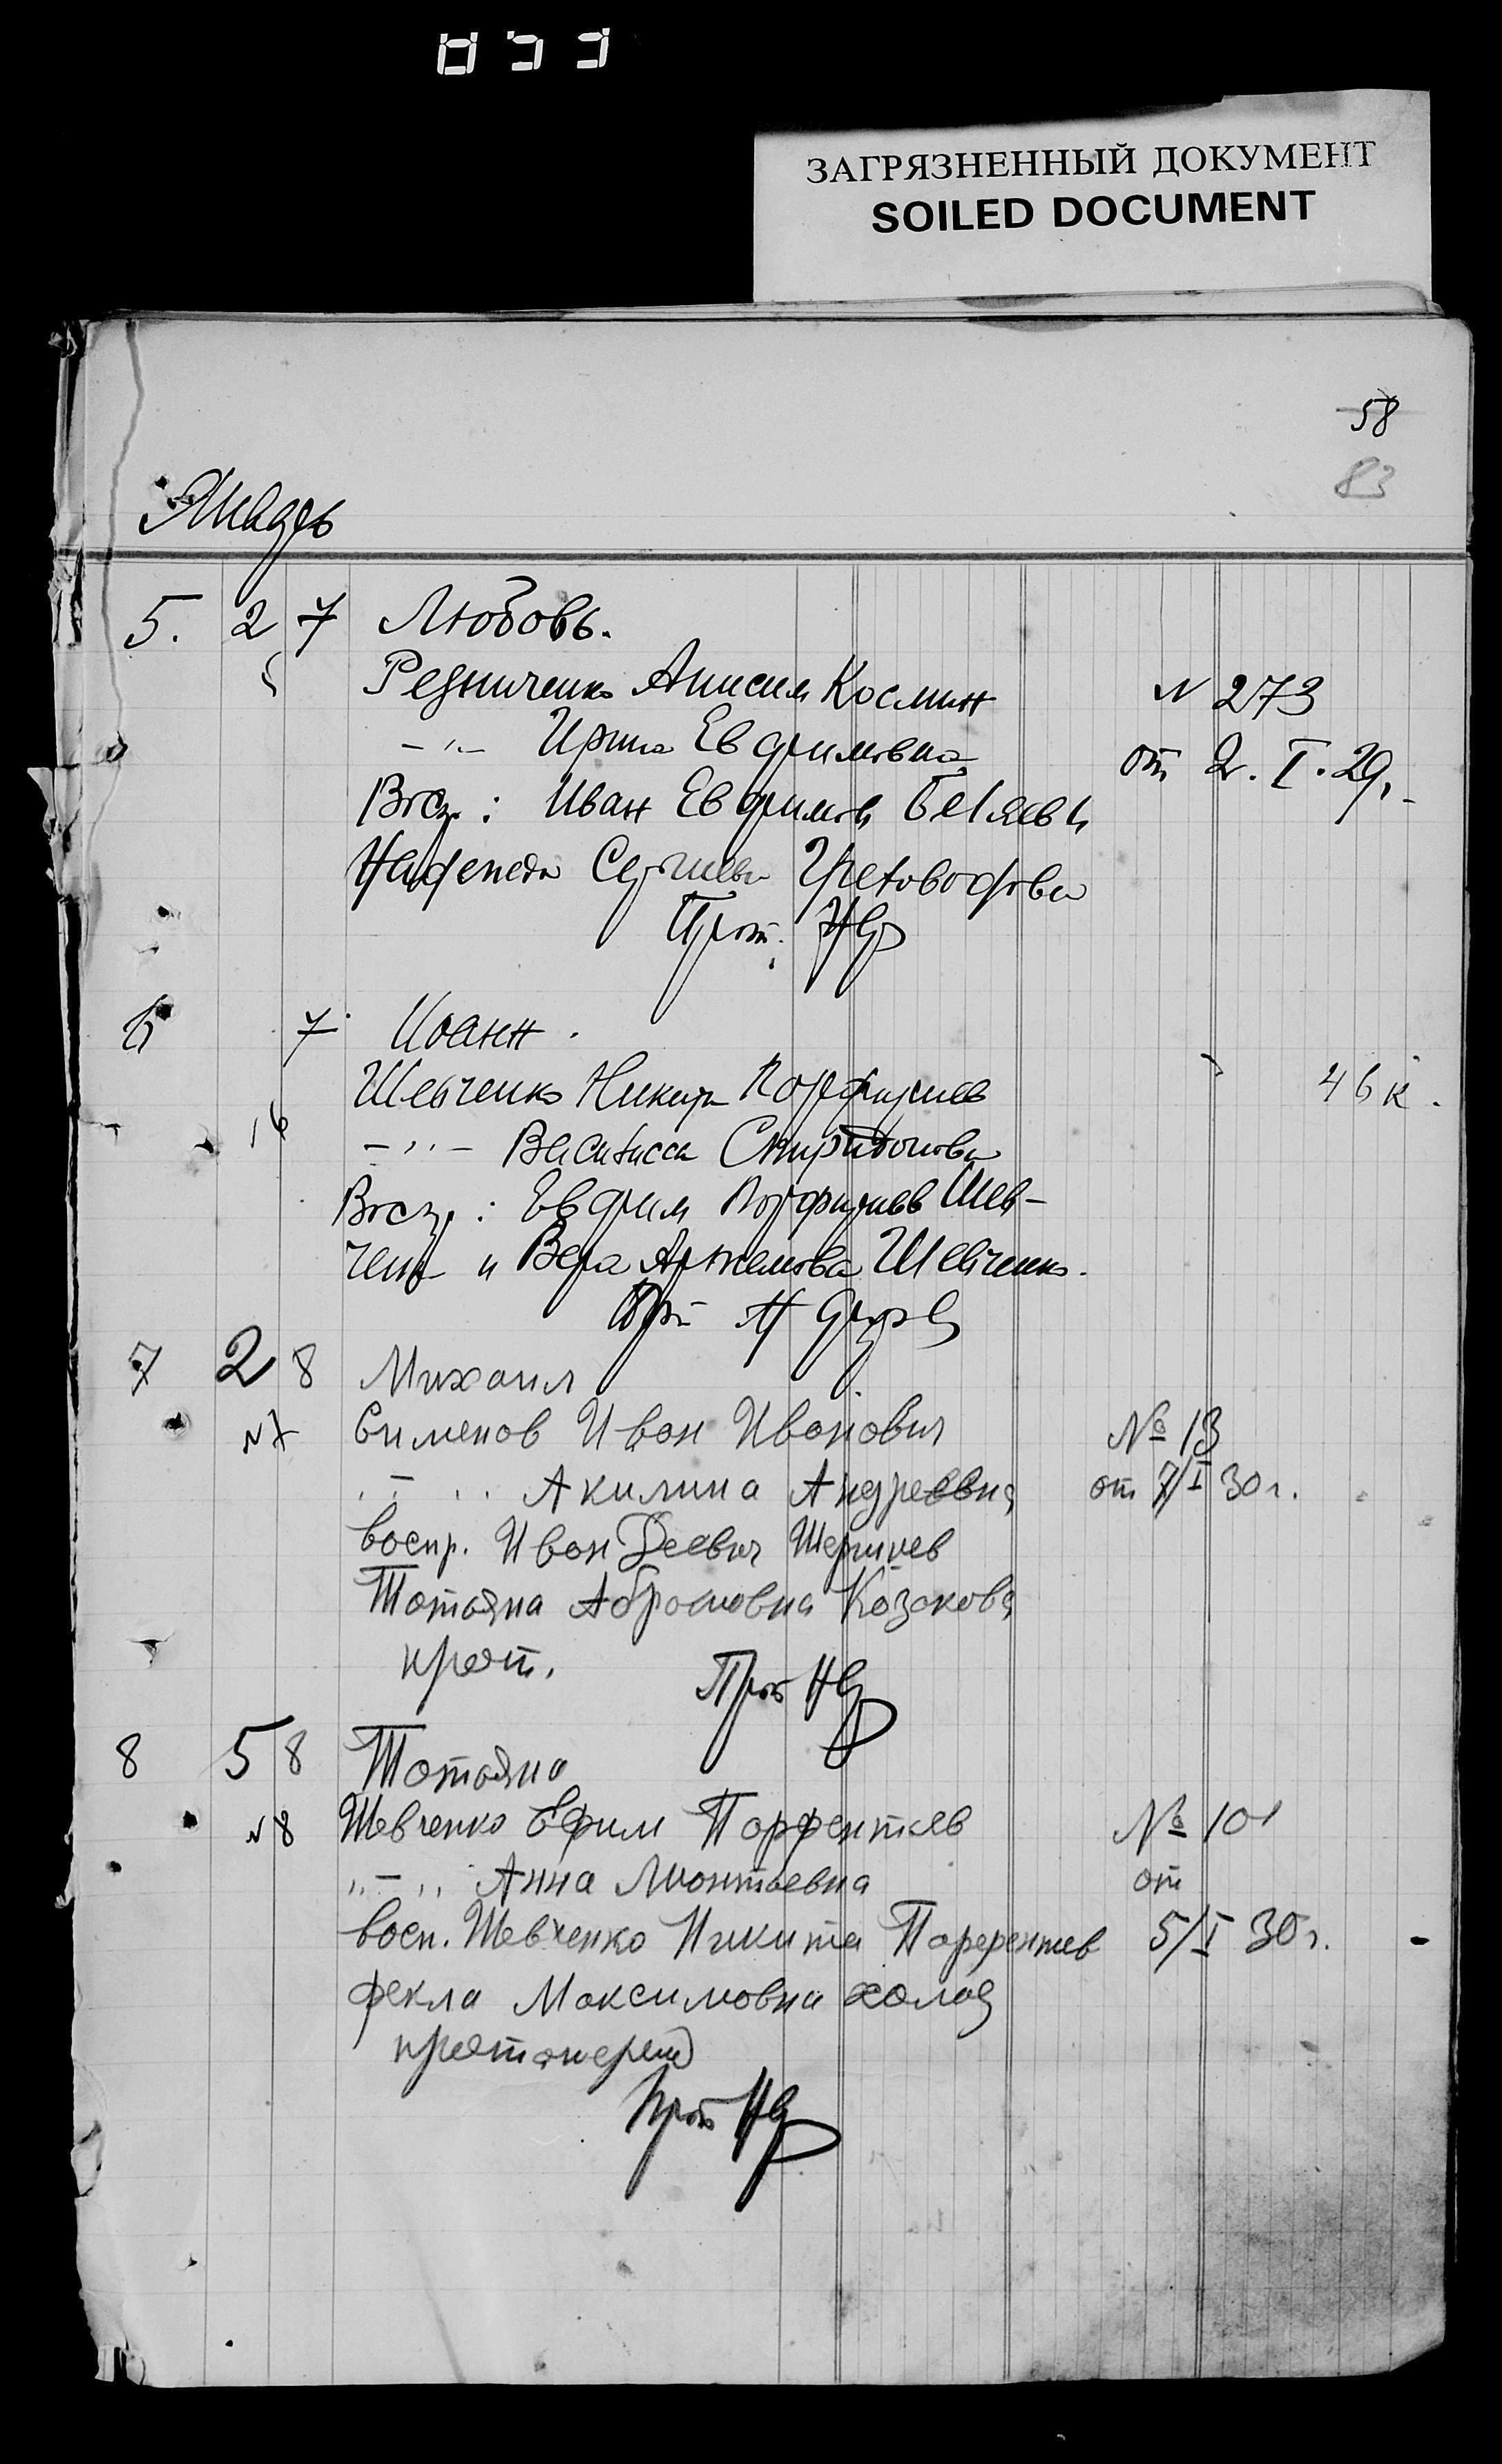 ЗАГРЯЗНЕННЫЙ ДОКУМЕНТ
SOILED DOCUMENT
58
83
Январь
5. 2 7 Любовь.
Резниченко Анисим Космин N 273
-"- Ирина Евфимовна от 2. I. 29.
Восп.: Иван Евфимов Беляев и
Надежда Сергиева
Прот.
6 7 Иоанн.
Шевченко Никита Порфириев 46 к.
-"- Василисса Спиридонова
Восп.: Евфим Порфириев Шев-
ченко и Вера Артемова Шевченко.
7 2 8 Михаил
N7 Сименов Иван Иванович № 13
" - " Акилина Андреевна от 7/I 30 г.
воспр. Иван Деевич
Татьяна Абрамовна Козакова
крест. Прот
8 5 8 Татьяна
N8 Шевченко Ефим Парфентьев № 101
" - " Анна Леонтьевна от
восп. Шевченко Никита Парфентьев 5/I 30 г.
фекла Максимовна
Прот